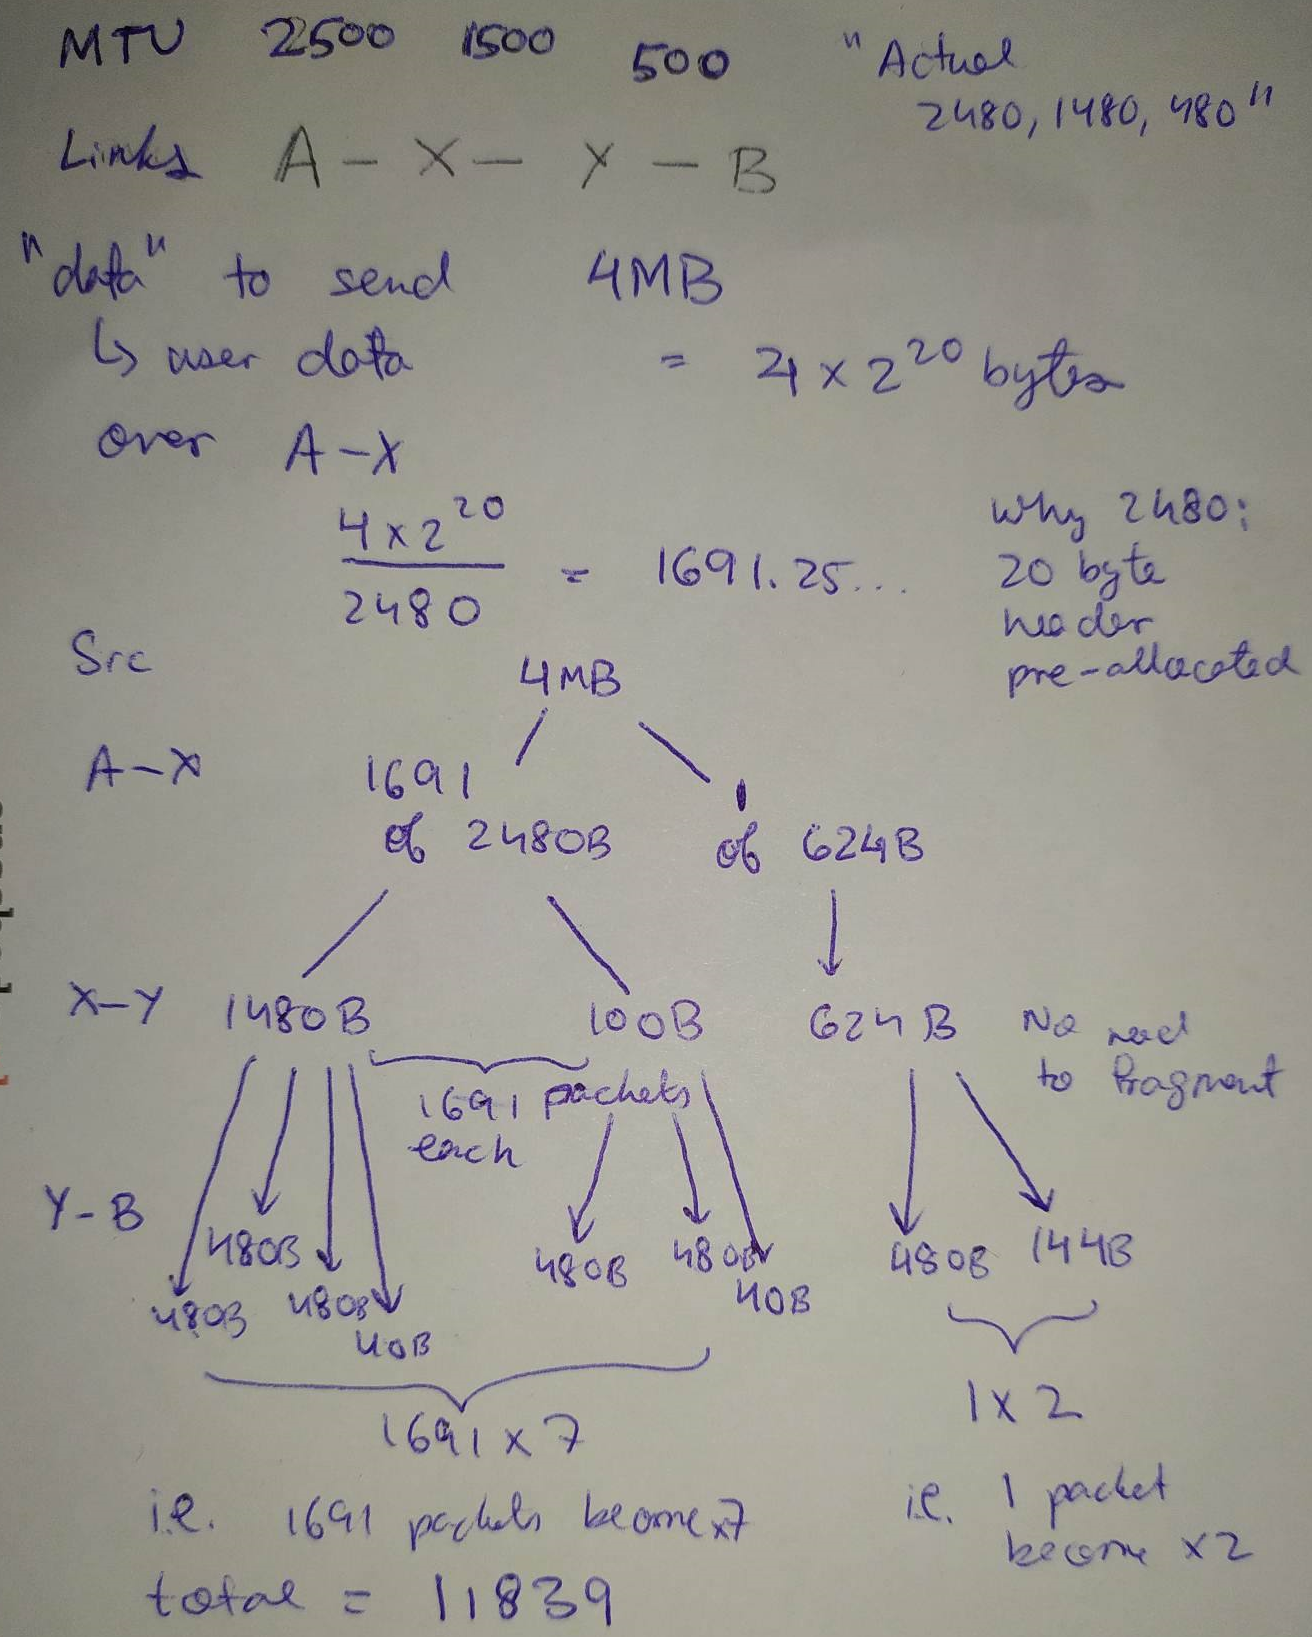 MTU 2500 1500 500 "Actual
2480, 1480, 480"
Links A - X - Y - B
"data" to send 4MB
↳ user data = 4 x 2^20 bytes
over A-X
4 x 2^20
2480
= 1691.25...
Why 2480:
20 byte
header
pre-allocated
Src 4MB
A-X 1691
of 2480B
1
of 624B
X-Y 1480B 100B 624B No need
to fragment
1691 packets
each
Y-B
480B 480B 480B 40B
480B 480B 40B
480B 144B
1691 x 7
1 x 2
i.e. 1691 packets become x7
i.e. 1 packet
become x2
total = 11839